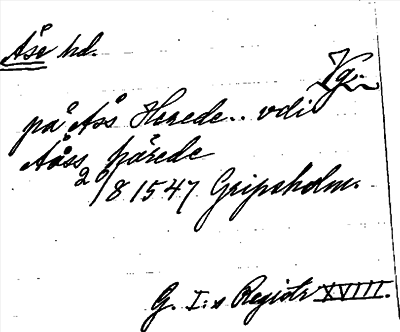 Åse hd.
Vg.
på Ås Herede.. vdi
Ååss härede
20/8 1547 Gripsholm.
G. I:s Registr XVIII.